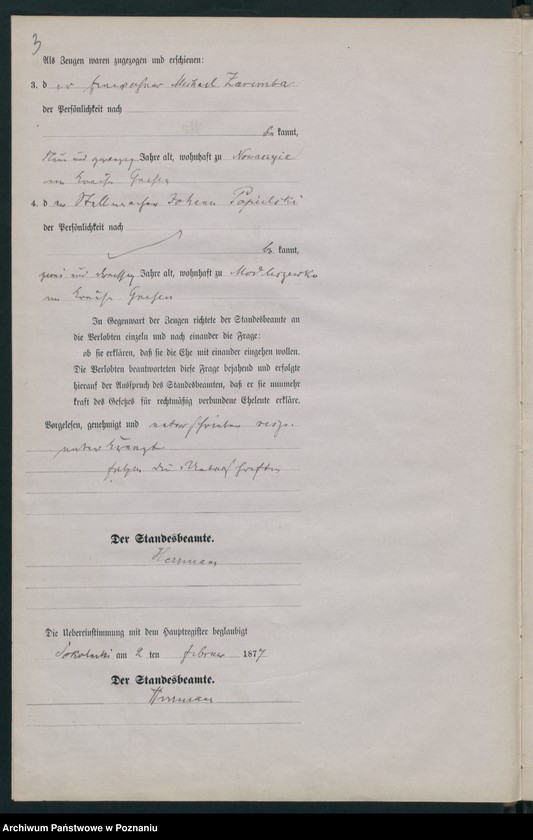 3
Als Zeugen waren zugezogen und erschienen:
3. der Einwohner Michael Zaremba
der Persönlichkeit nach
bekannt,
Neun und zwanzig Jahre alt, wohnhaft zu
im Kreise Gnesen
4. der Stellmacher Johann Popielski
der Persönlichkeit nach
bekannt,
zwei und dreißig Jahre alt, wohnhaft zu Modliszewko
im Kreise Gnesen
In Gegenwart der Zeugen richtete der Standesbeamte an
die Verlobten einzeln und nach einander die Frage:
ob sie erklären, daß sie die Ehe mit einander eingehen wollen.
Die Verlobten beantworteten diese Frage bejahend und erfolgte
hierauf der Ausspruch des Standesbeamten, daß er sie nunmehr
kraft des Gesetzes für rechtmäßig verbundene Eheleute erkläre.
Vorgelesen, genehmigt und unterschrieben resp.
unterkreuzt
folgen die Unterschriften
Der Standesbeamte.
Herrmann
Die Uebereinstimmung mit dem Hauptregister beglaubigt
am 2 ten Februar 1877
Der Standesbeamte.
Herrmann
Archiwum Państwowe w Poznaniu